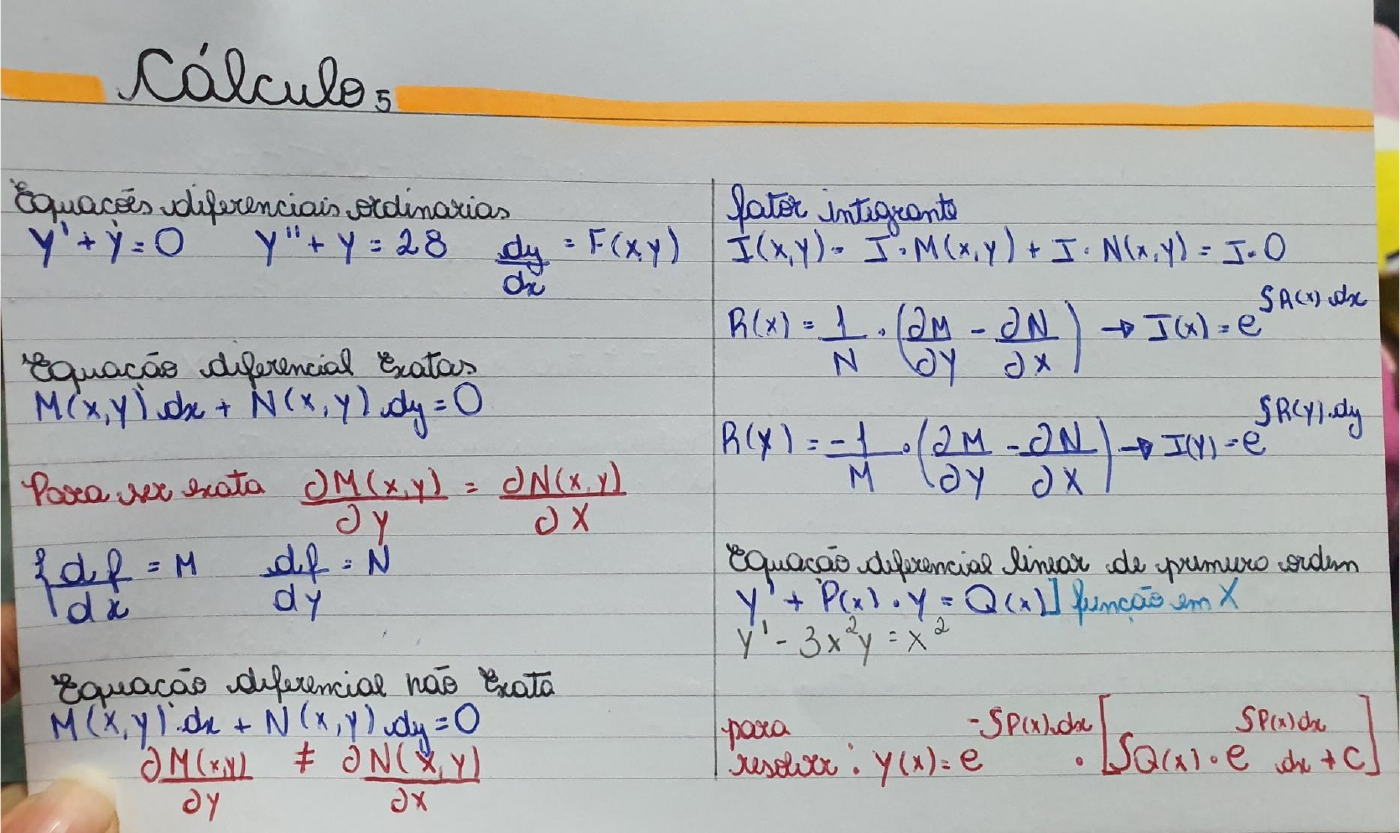 Cálculo 5
Equações diferenciais ordinarias
y' + y = 0 y'' + y = 28 dy/dx = F(x,y)
Equação diferencial Exatas
M(x,y) dx + N(x,y) dy = 0
Para ser exata ∂M(x,y)/∂y = ∂N(x,y)/∂x
{ df/dx = M df/dy = N
Equação diferencial não Exata
M(x,y) dx + N(x,y) dy = 0
∂M(x,y)/∂y ≠ ∂N(x,y)/∂x
fator integrante
I(x,y) = I · M(x,y) + I · N(x,y) = I · 0
R(x) = 1/N · (∂M/∂y - ∂N/∂x) → I(x) = e^∫R(x).dx
R(y) = -1/M · (∂M/∂y - ∂N/∂x) → I(y) = e^∫R(y).dy
Equação diferencial linear de primeiro ordem
y' + P(x) · y = Q(x)] função em x
y' - 3x²y = x²
para
resolver: y(x) = e^-∫P(x).dx · [∫Q(x) · e^∫P(x)dx dx + C]